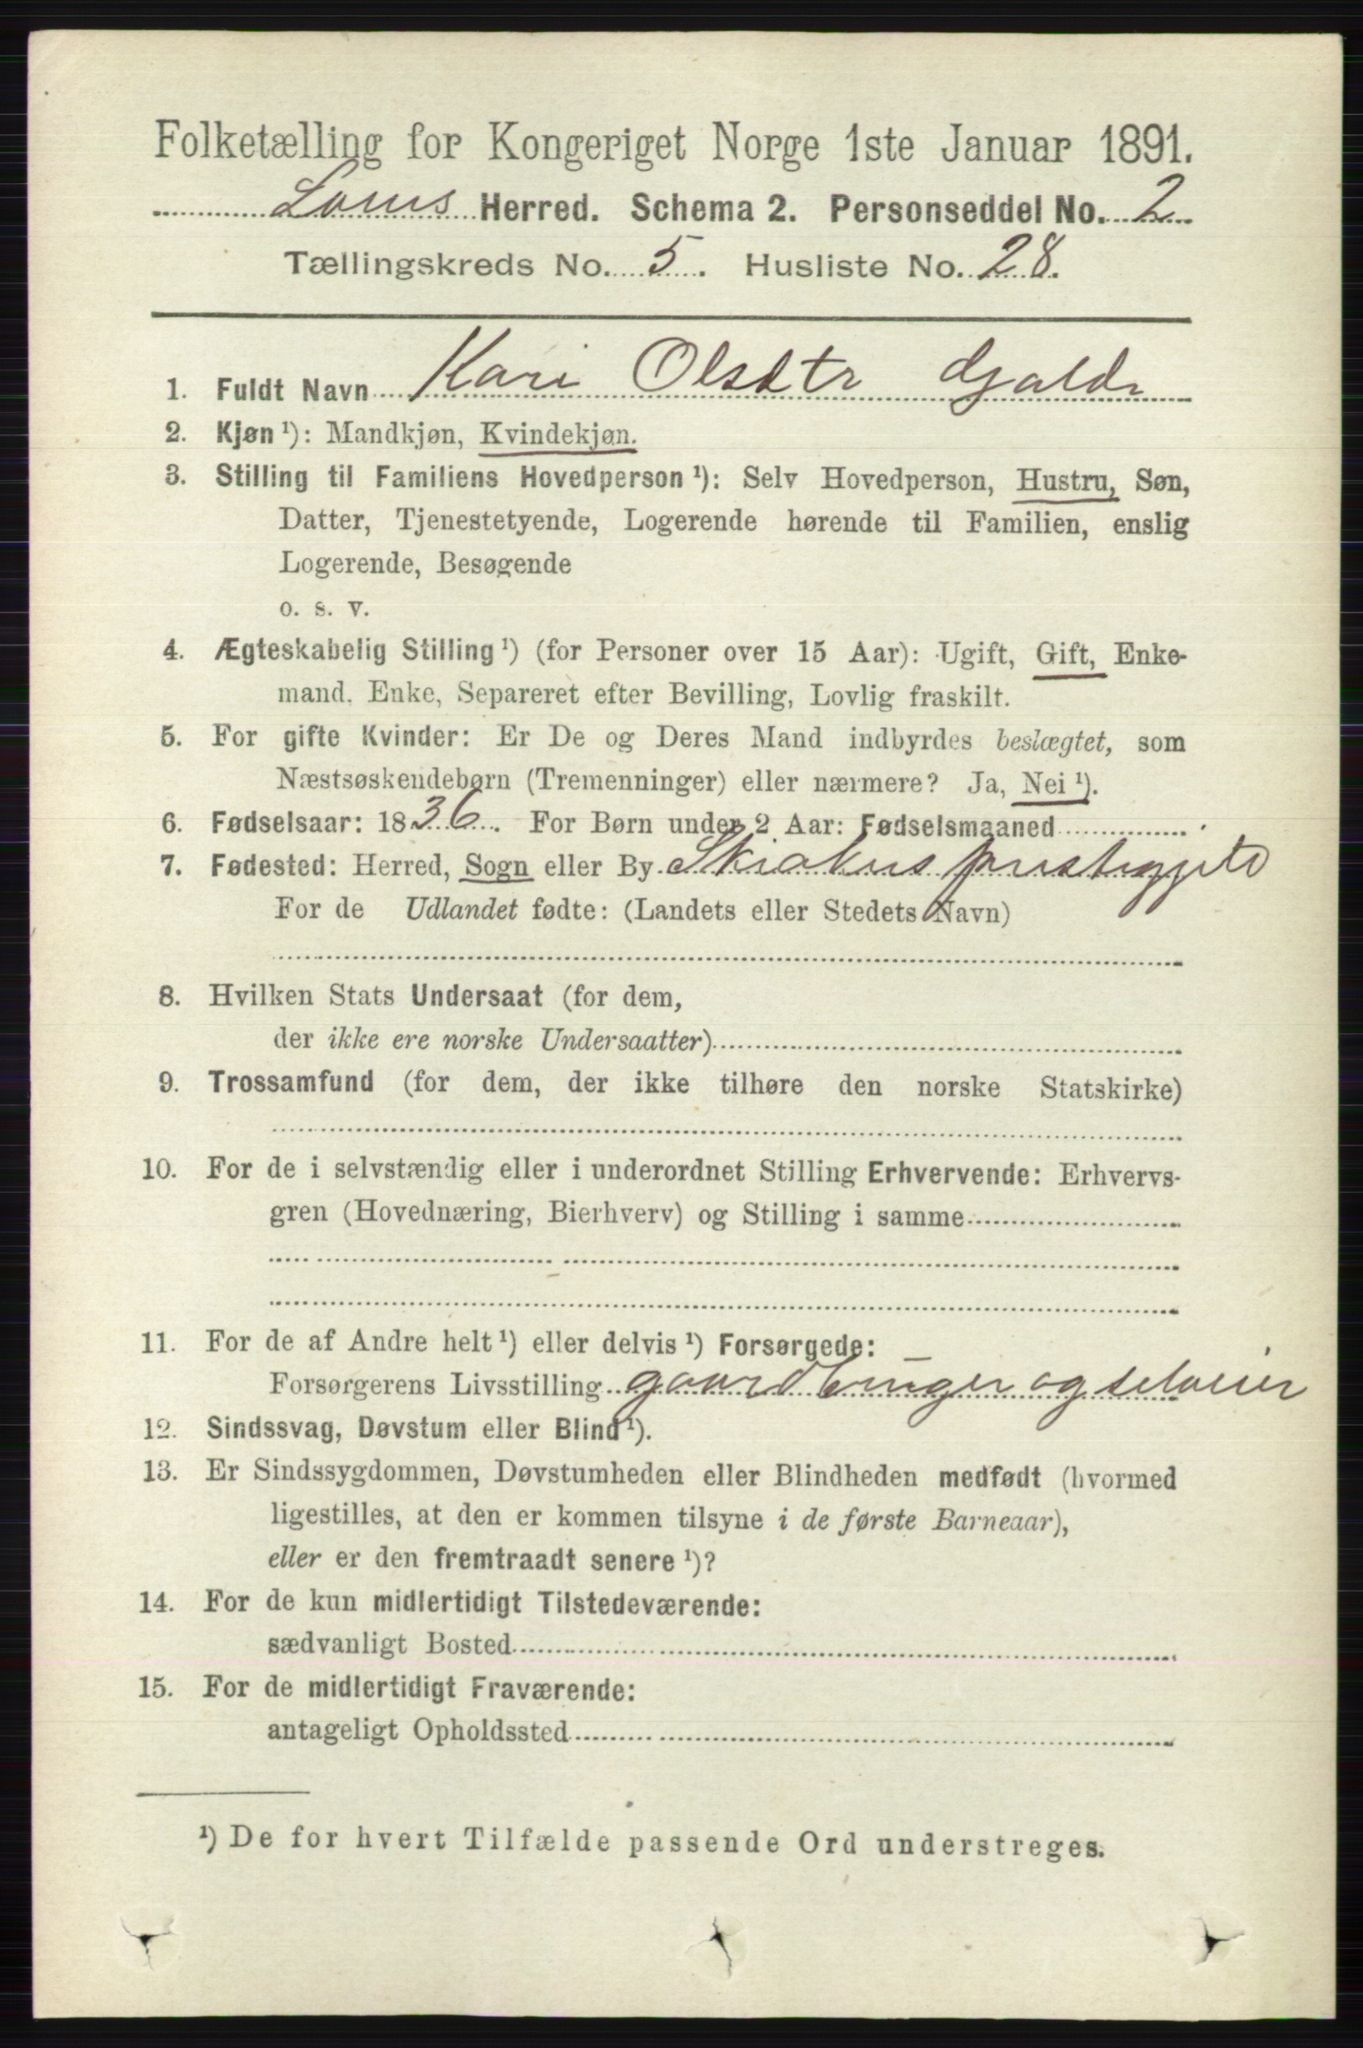 Folketælling for Kongeriget Norge 1ste Januar 1891.
Loms Herred. Schema 2. Personseddel No. 2
Tællingskreds No. 5. Husliste No. 28.
1. Fuldt Navn Kari Olsdtr Galde
2. Kjøn ¹): Mandkjøn, Kvindekjøn.
3. Stilling til Familiens Hovedperson ¹): Selv Hovedperson, Hustru, Søn,
Datter, Tjenestetyende, Logerende hørende til Familien, enslig
Logerende, Besøgende
o. s. v.
4. Ægteskabelig Stilling ¹) (for Personer over 15 Aar): Ugift, Gift, Enke-
mand, Enke, Separeret efter Bevilling, Lovlig fraskilt.
5. For gifte Kvinder: Er De og Deres Mand indbyrdes beslægtet, som
Næstsøskendebørn (Tremenninger) eller nærmere? Ja, Nei ¹).
6. Fødselsaar: 1836. For Børn under 2 Aar: Fødselsmaaned
7. Fødested: Herred, Sogn eller By Skiakers prestegjeld
For de Udlandet fødte: (Landets eller Stedets Navn)
8. Hvilken Stats Undersaat (for dem,
der ikke ere norske Undersaatter)
9. Trossamfund (for dem, der ikke tilhøre den norske Statskirke)
10. For de i selvstændig eller i underordnet Stilling Erhvervende: Erhvervs-
gren (Hovednæring, Bierhverv) og Stilling i samme
11. For de af Andre helt ¹) eller delvis ¹) Forsørgede:
Forsørgerens Livsstilling gaardbruger og selveier
12. Sindssvag, Døvstum eller Blind ¹).
13. Er Sindssygdommen, Døvstumheden eller Blindheden medfødt (hvormed
ligestilles, at den er kommen tilsyne i de første Barneaar),
eller er den fremtraadt senere ¹)?
14. For de kun midlertidigt Tilstedeværende:
sædvanligt Bosted
15. For de midlertidigt Fraværende:
antageligt Opholdssted
¹) De for hvert Tilfælde passende Ord understreges.